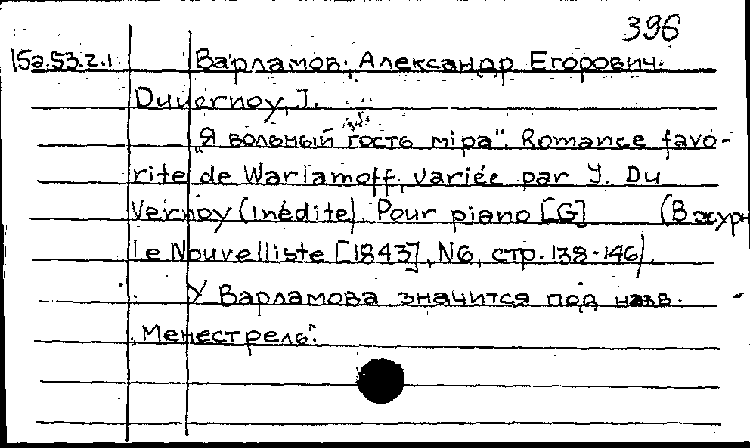 396
15a.53.2.1 Варламов, Александр Егорович.
Duvernoy, J.
"Я вольный гость мiра". Romance favo-
rite de Warlamoff, variée par J. Du
Vernoy (Inédite). Pour piano [G] (В журн
Le Nouvelliste [1843], N6, стр. 138-146).
У Варламова значится под назв.
"Менестрель".